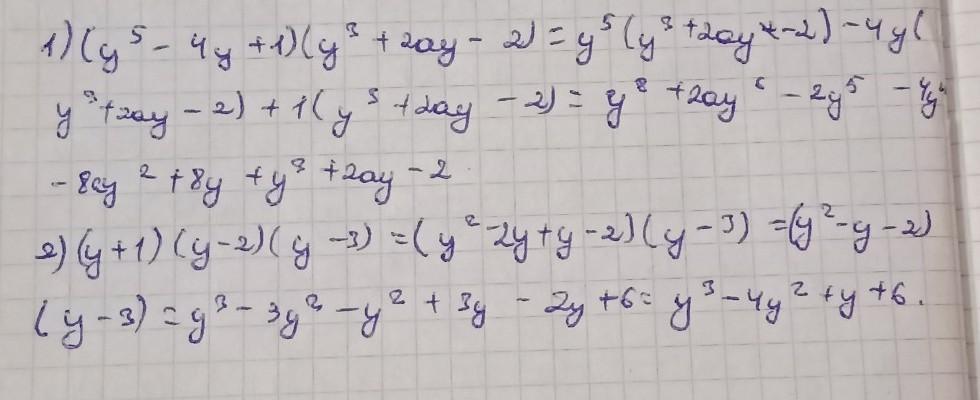 1) (y⁵ - 4y + 1)(y³ + 2ay - 2) = y⁵(y³ + 2ay - 2) - 4y(
y³ + 2ay - 2) + 1(y³ + 2ay - 2) = y⁸ + 2ay⁶ - 2y⁵ - 4y⁴
- 8ay² + 8y + y³ + 2ay - 2
2) (y + 1)(y - 2)(y - 3) = (y² - 2y + y - 2)(y - 3) = (y² - y - 2)
(y - 3) = y³ - 3y² - y² + 3y - 2y + 6 = y³ - 4y² + y + 6.